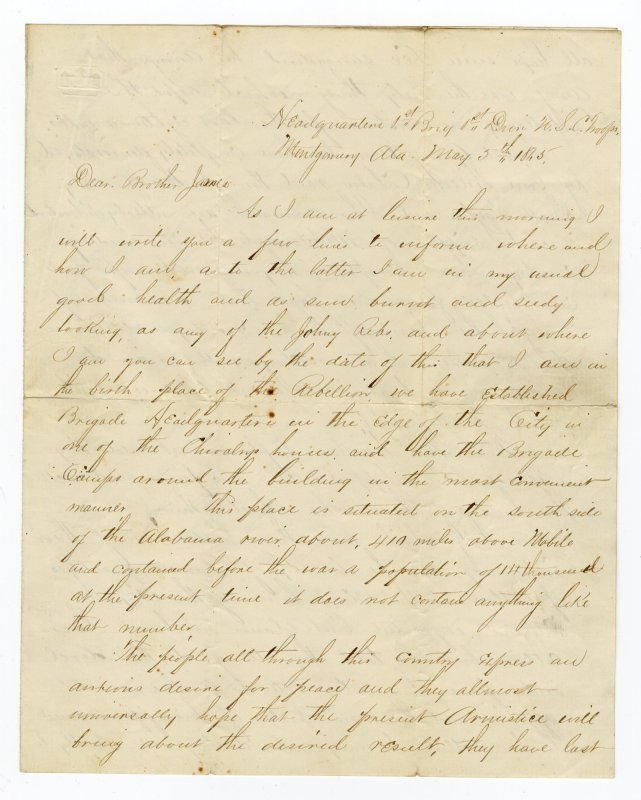 Headquarters 1st Brig 1st Divn U. S. C. Troops
Montgomery Ala. May 5th 1865,
Dear Brother James
As I am at leisure this morning I
will write you a few lines to inform where and
how I am, as to the latter I am in my usual
good health and as sun burnt and seedy
looking, as any of the Johny Rebs, and about where
I am you can see by the date of this that I am in
the birth place of the Rebellion, we have Established
Brigade Headquarters in the Edge of the City in
one of the Chivalrys houses, and have the Brigade
Camps around the building in the most convenient
manner This place is situated on the south side
of the Alabama river about, 410 miles above Mobile
and contained before the war a population of 14 thousand
at the present time it does not contain anything like
that number,
The people all through this Country Express an
anxious desire for peace and they allmost
universally hope that the present Armistice will
bring about the desired result, they have lost